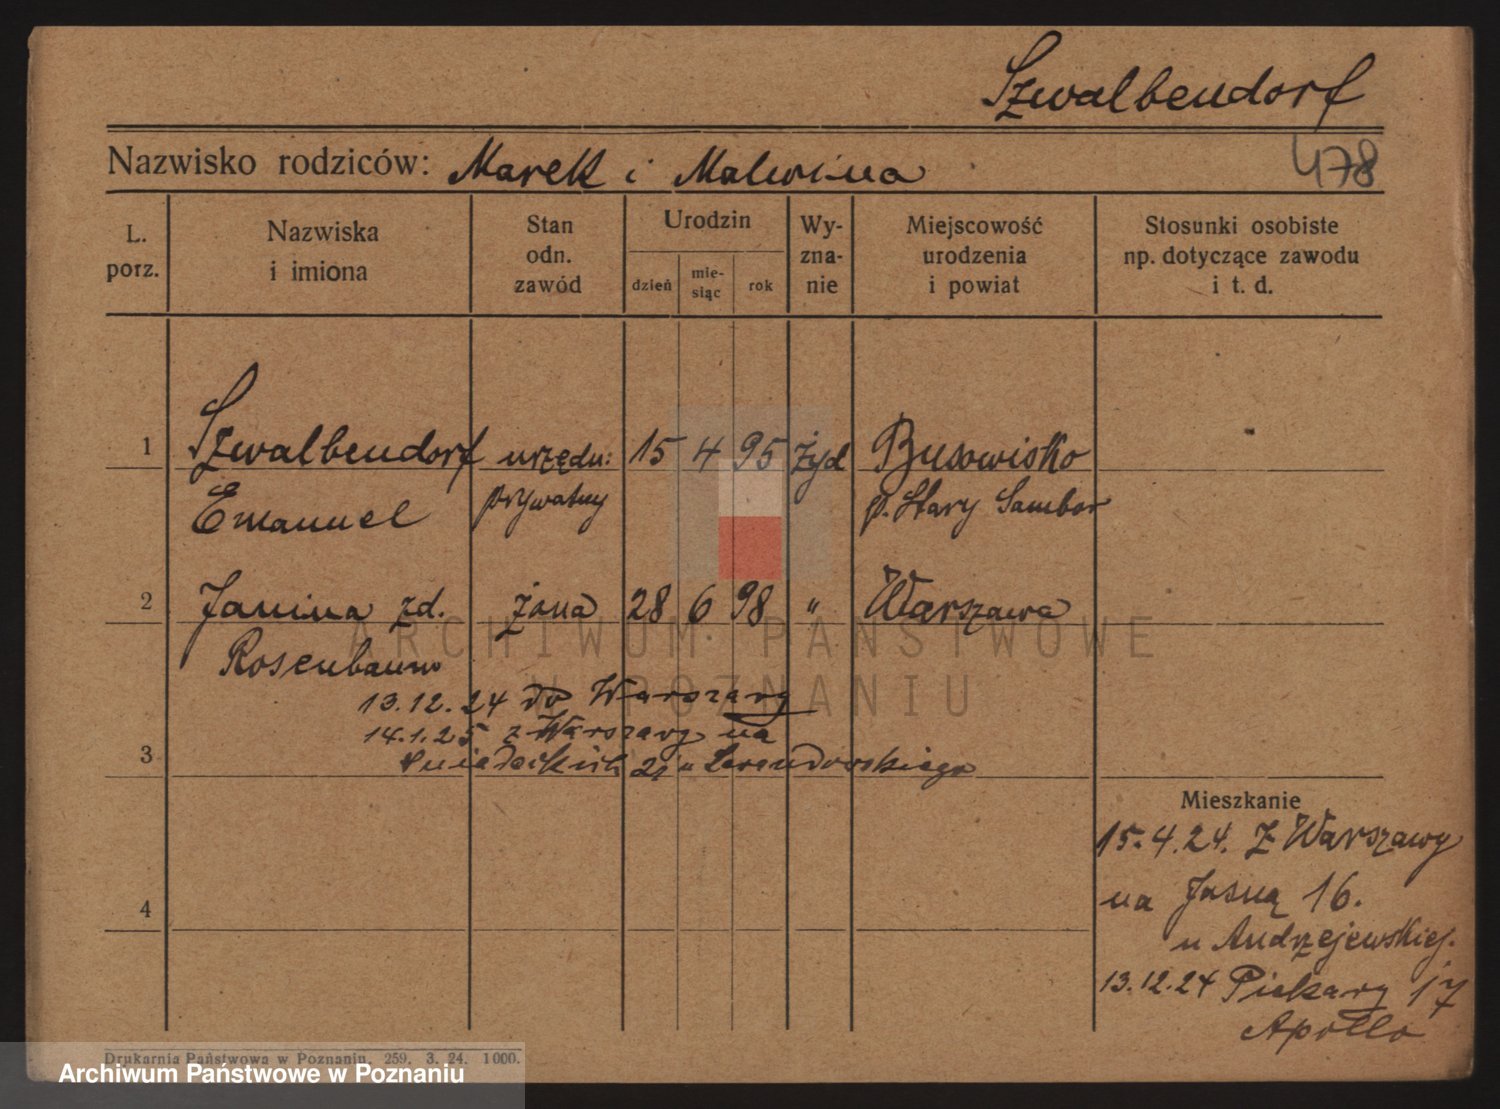 Szwalbendorf
Nazwisko rodziców: Marek i Malwina 478
L. porz. Nazwiska i imiona Stan odn. zawód Urodzin dzień mie-siąc rok Wy-zna-nie Miejscowość urodzenia i powiat Stosunki osobiste np. dotyczące zawodu i t. d.
1 Szwalbendorf urzędn: 15 4 95 żyd Busowisko
Emanuel prywatny p. Stary Sambor
2 Janina zd. żona 28 6 98 " Warszawa
Rosenbaum
13.12.24 do Warszawy
14.1.25 z Warszawy na
3 Śniadeckich u Lewandowskiego
Mieszkanie
15.4.24. Z Warszawy
4 na Jasną 16.
u Andrzejewskiej.
13.12.24 Piekary 17
Apollo
Drukarnia Państwowa w Poznaniu. 259. 3. 24. 1000.
ARCHIWUM PAŃSTWOWE
W POZNANIU
Archiwum Państwowe w Poznaniu